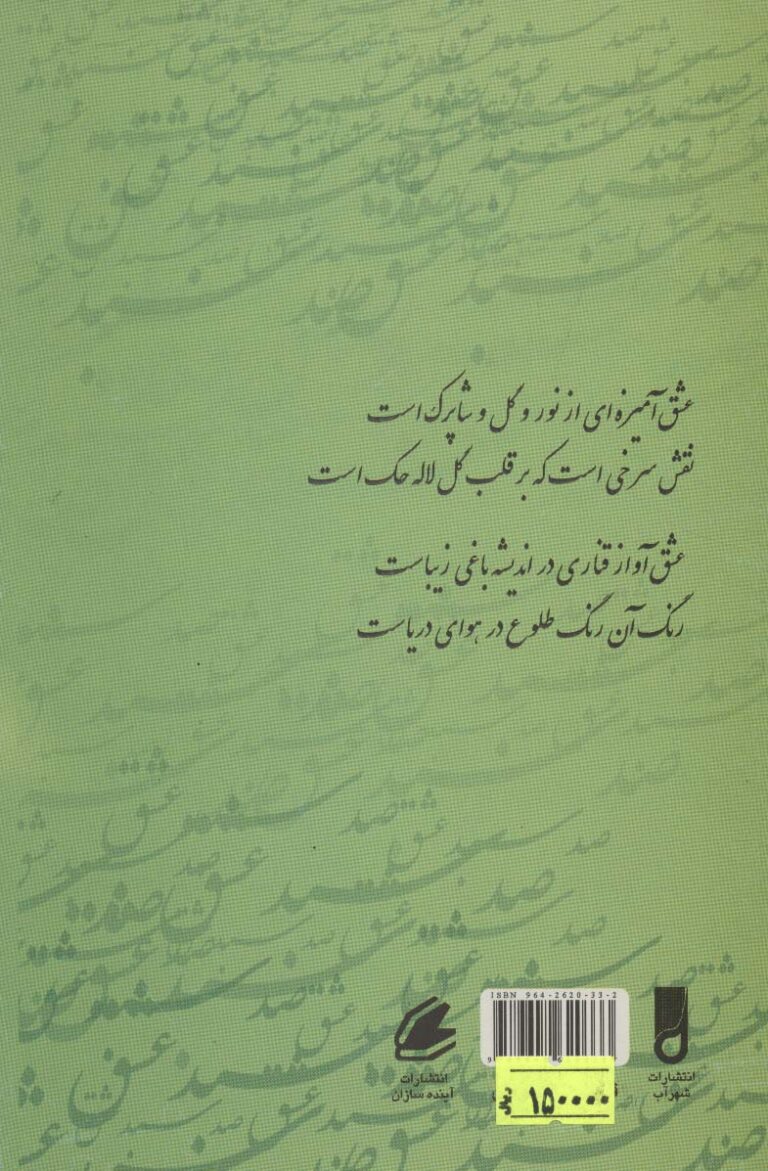 عشق آمیزه ای از نور و گل و شاپرک است
نقش سرخی است که بر قلب گل لاله حک است
عشق آواز قناری در اندیشه باغی زیباست
رنگ آن رنگ طلوع در هوای دریاست
ISBN 964-2620-33-2
انتشارات
شهرآب
انتشارات
آینده سازان
۱۵۰۰۰۰
ریال